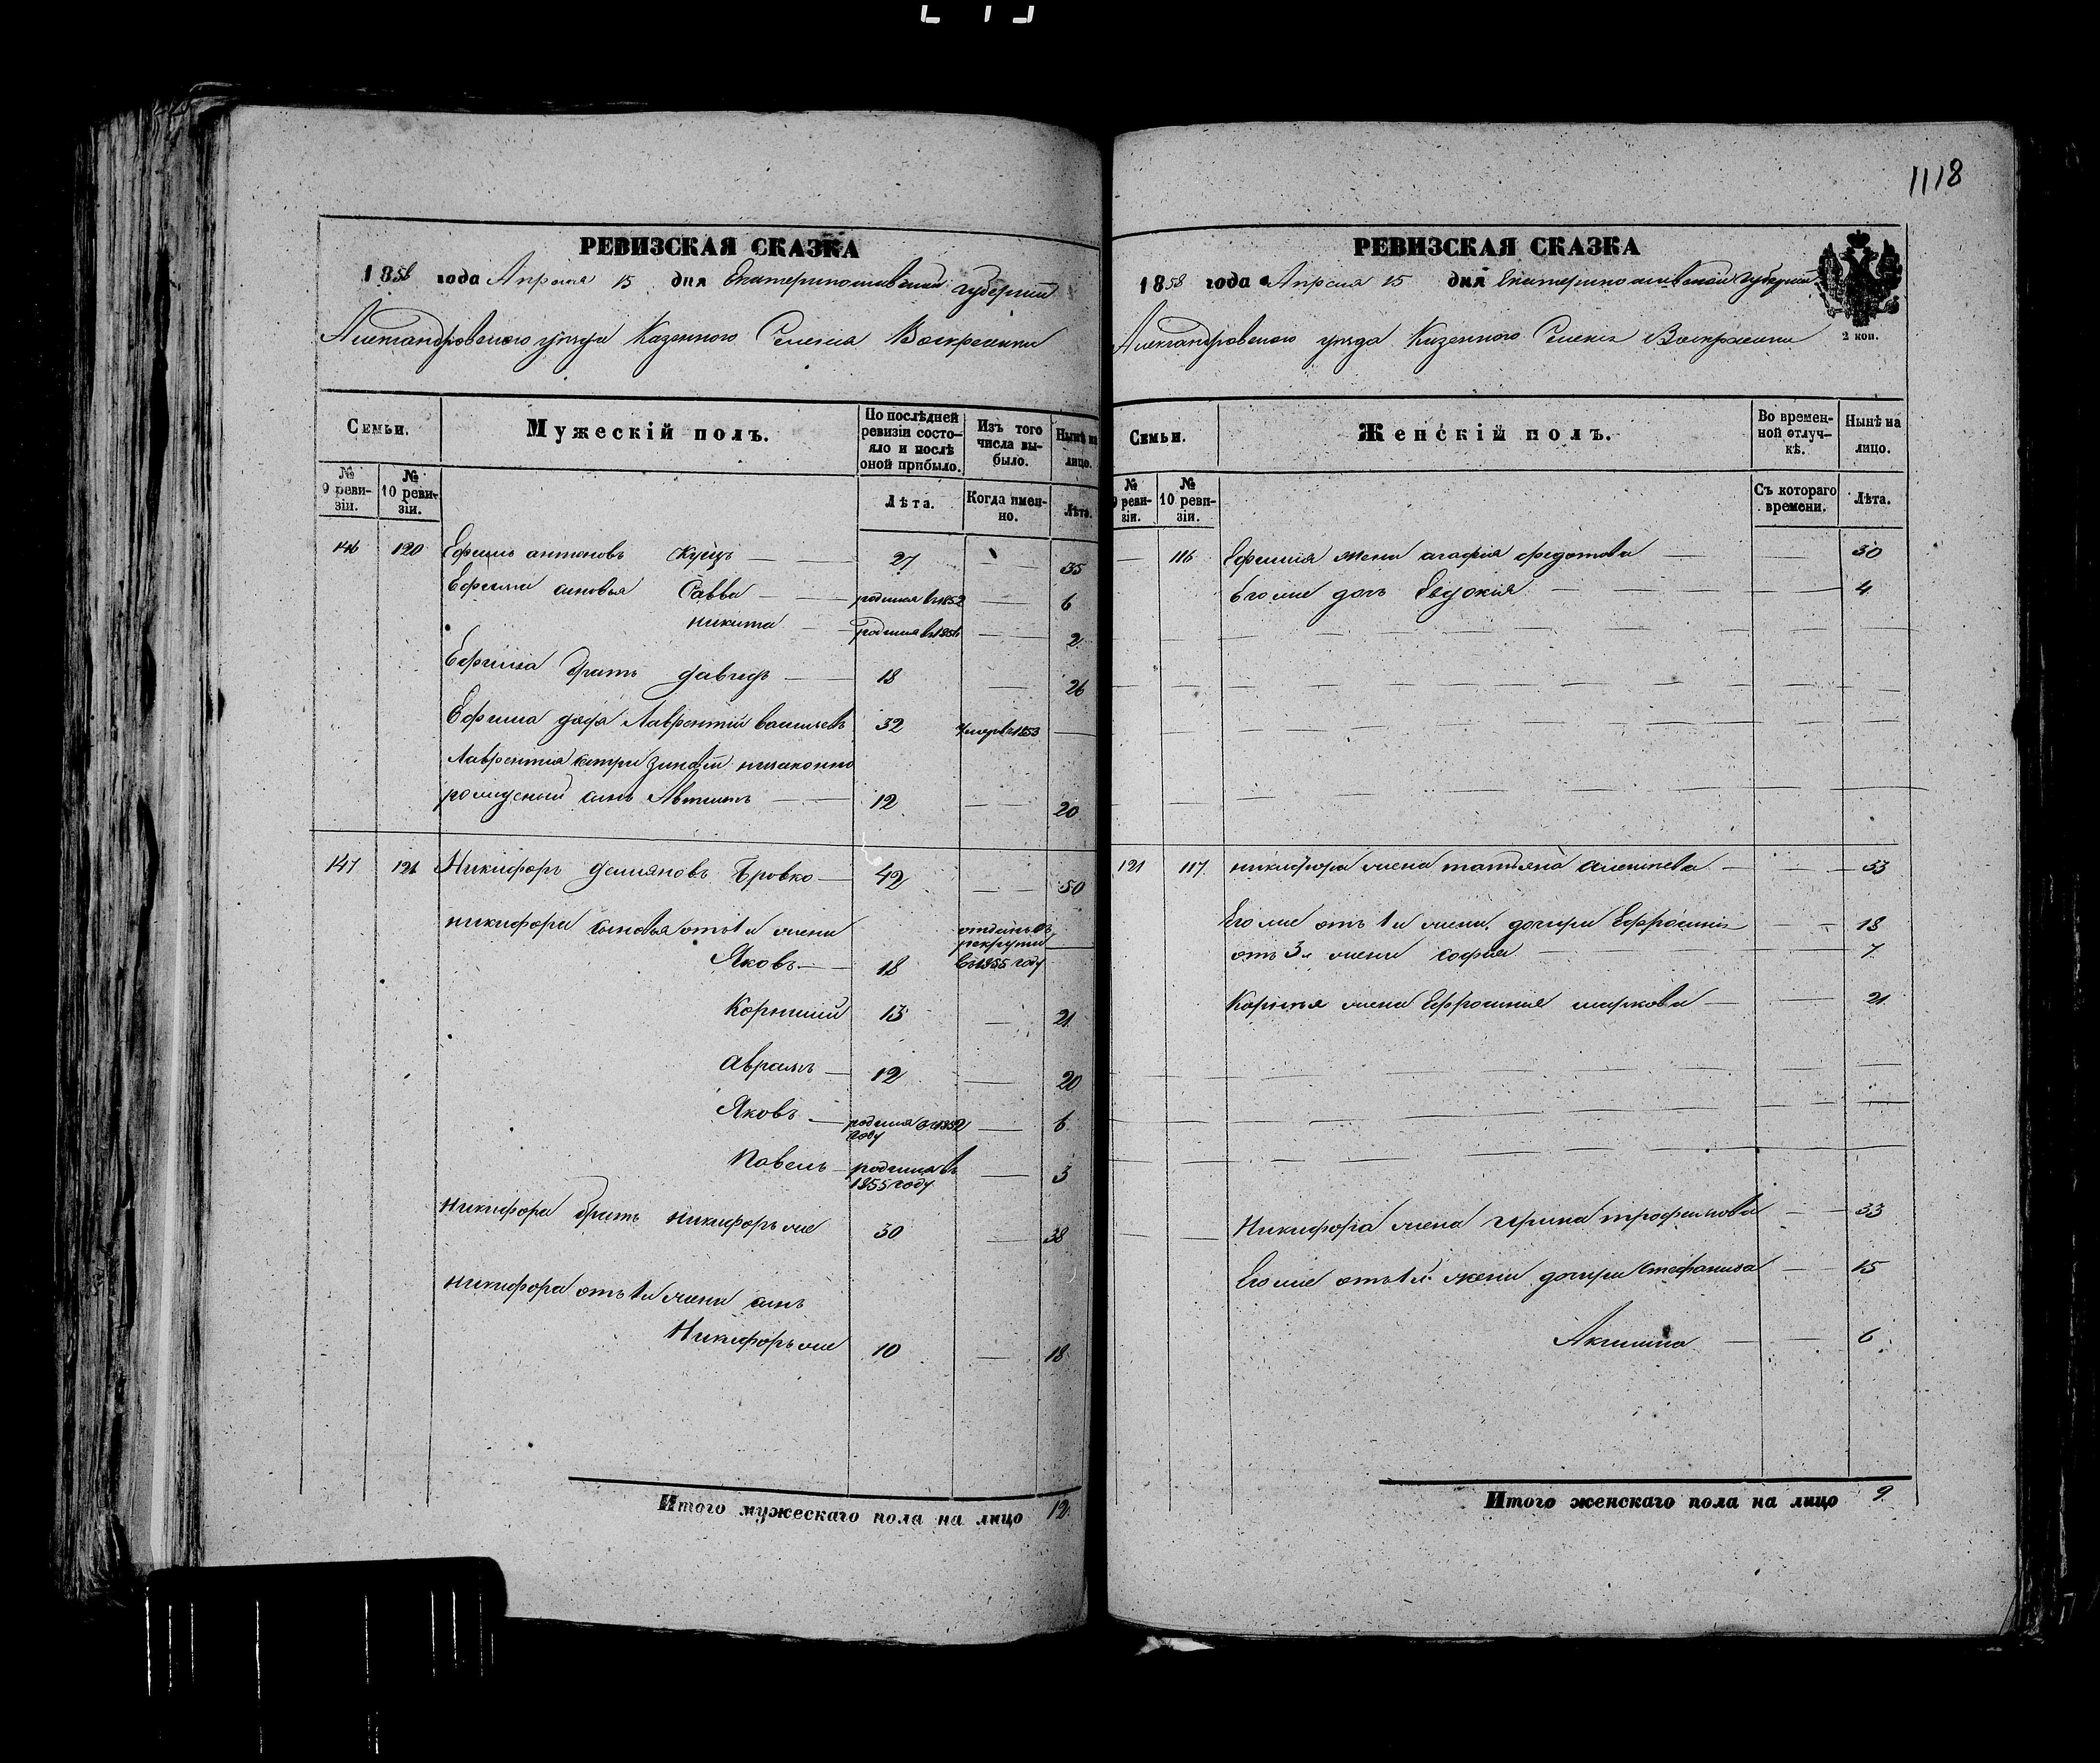 1118
РЕВИЗСКАЯ СКАЗКА
1858 года Апреля 15 дня Екатеринославской губернии
Александровского уезда Казенного Селения Воскресенки
Семьи.
Мужескій полъ.
По послѣдней ревизіи состо-
яло и послѣ
оной прибыло.
Изъ того
числа вы-
было.
Нынѣ на
лицо.
№
9 реви-
зіи.
№
10 реви-
зіи.
Лѣта.
Когда имен-
но.
Лѣта.
146 120 Ефимъ антоновъ Куцъ 27 35
Ефима сыновья Савва родился в 1852 6
никита родился в 1856 2
Ефима братъ давидъ 18 26
Ефима дядя Лаврентій васильевъ 32 умеръ в 1853
Лаврентія сестри незаконно
рожденый сынъ 12 20
147 121 Никифоръ демяновъ Бровко 42 50
никифора сыновья отъ 1й жени
Яковъ 18 отданъ въ рекруты въ 1855 году
Корнилий 13 21
аврамъ 12 20
Яковъ родился в 1852 году 6
Павелъ родился въ 1855 году 3
никифора братъ никифоръ же 30 38
никифора отъ 1й жени сынъ
Никифоръ же 10 18
Итого мужескаго пола на лицо 12
РЕВИЗСКАЯ СКАЗКА
1858 года Апреля 15 дня Екатеринославской губернии
2 коп.
Александровского уезда Казенного Селения Воскресенки
Семьи.
Женскій полъ.
Во времен-
ной отлуч-
кѣ.
Нынѣ на
лицо.
№
9 реви-
зіи.
№
10 реви-
зіи.
Съ котораго
времени.
Лѣта.
116 Ефимия жена агафия федотова 30
Его же дочь Евдокія 4
121 117 никифора жена татьяна 33
Его же отъ 1й жени дочери Ефросинія 18
отъ 3й жени софия 7
жена Ефросиния маркова 21
Никифора жена ирина трофимова 33
Его же отъ 1й жени дочери Степанида 15
Акилина 6
Итого женскаго пола на лицо 9